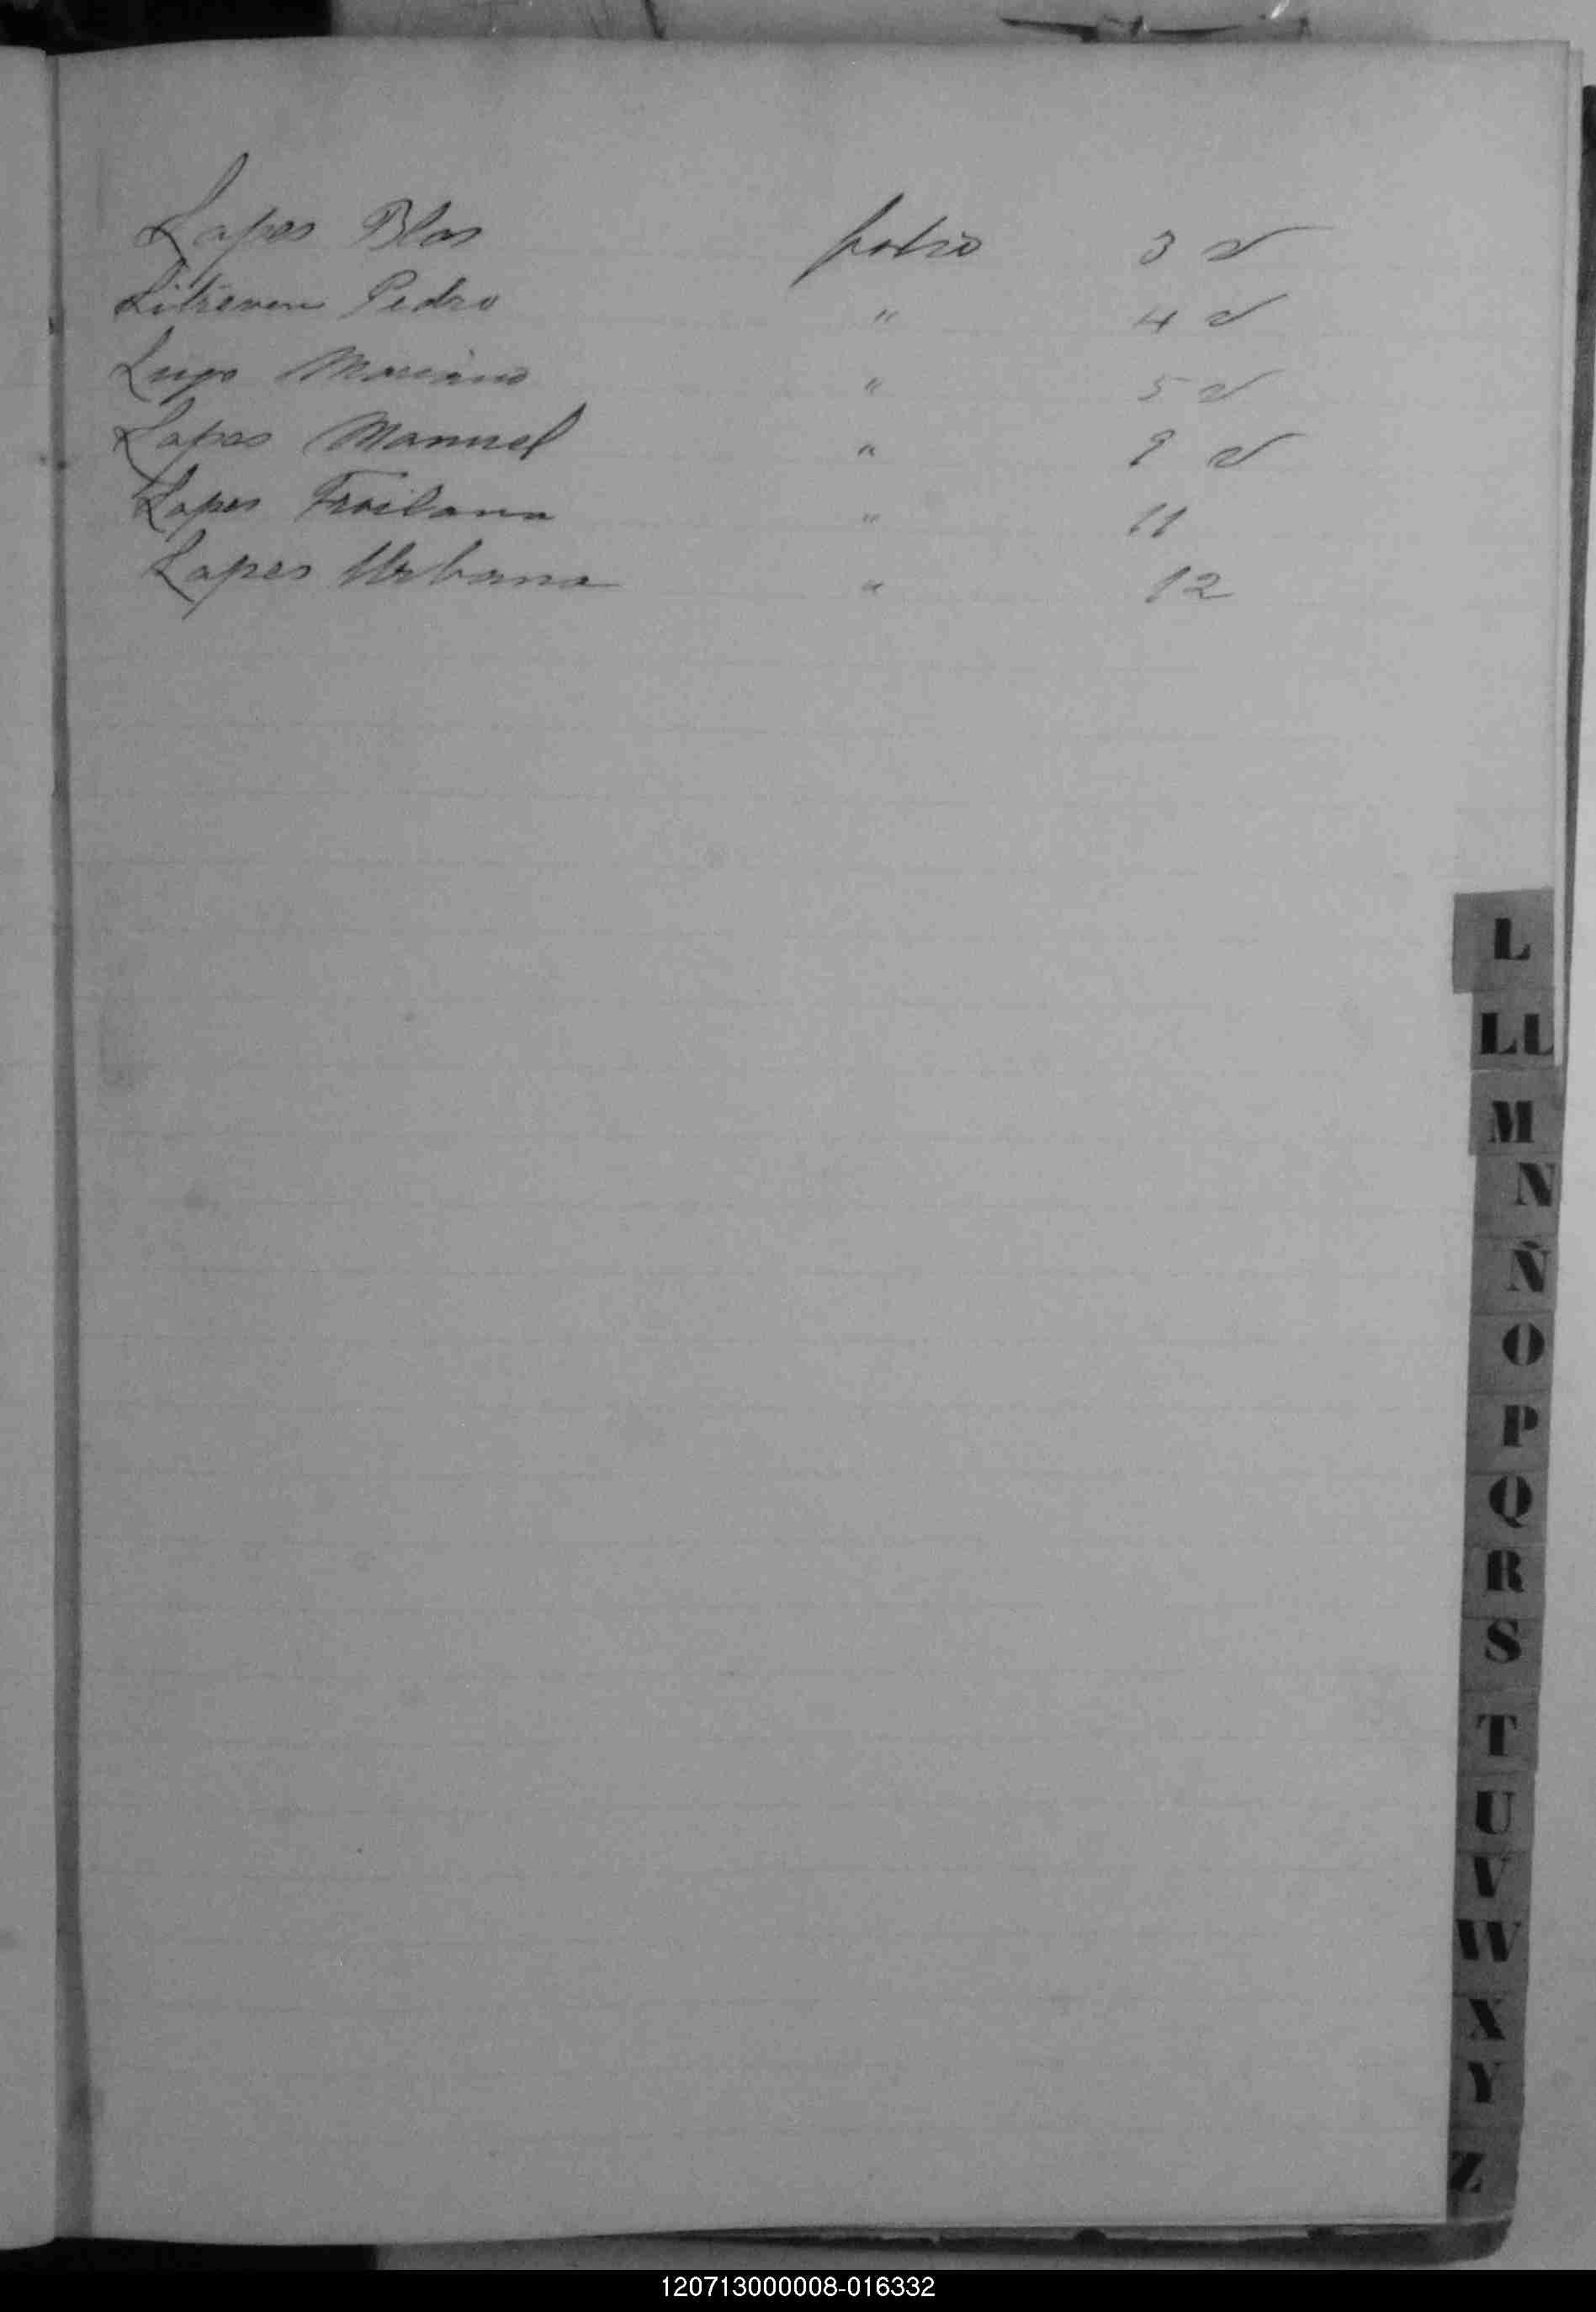 Lopes Blas folio 3 v
Pedro " 4 v
Lugo Mariano " 5 v
Lopes Manuel " 9 v
Lopes Froilana " 11
Lopes Urbana " 12
L
LL
M
N
Ñ
O
P
Q
R
S
T
U
V
W
X
Y
Z
120713000008-016332